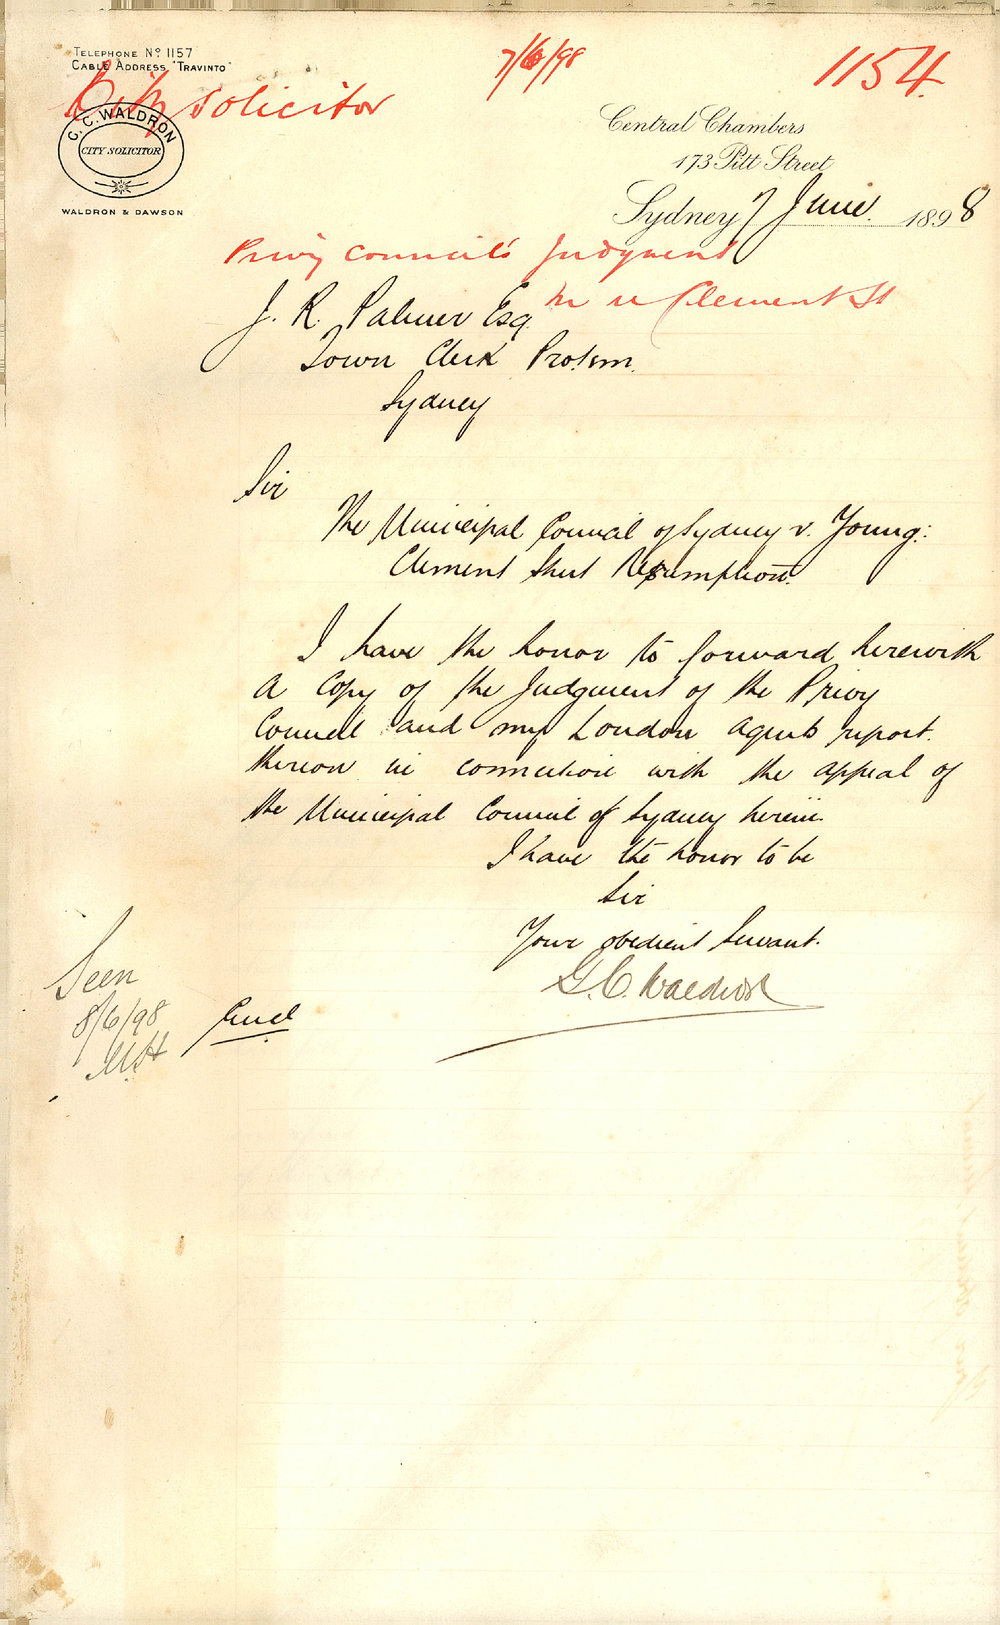 TELEPHONE Nº 1157
CABLE ADDRESS, "TRAVINTO"
7/6/98
1154
City Solicitor
G. C. WALDRON
CITY SOLICITOR
WALDRON & DAWSON
Central Chambers
173 Pitt Street
Sydney 7 June 1898
Privy Council's Judgment
in re Clement St
J. R. Palmer Esq
Town Clerk Protem.
Sydney
Sir
The Municipal Council of Sydney v. Young:
Clement Street Resumption.
I have the honor to forward herewith
a copy of the Judgment of the Privy
Council and my London agents report
thereon in connection with the appeal of
the Municipal Council of Sydney herein.
I have the honor to be
Sir
Your obedient Servant.
G. C. Waldron
Seen
8/6/98
Encl